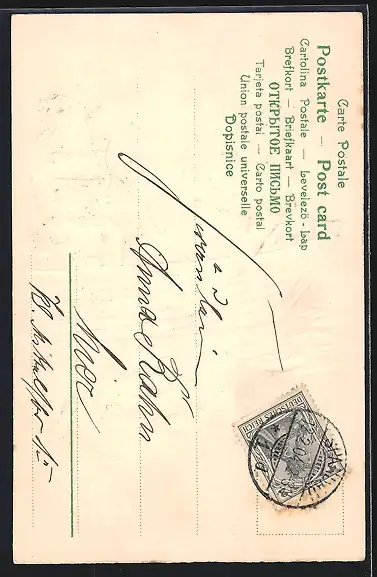 Carte Postale
Postkarte — Post card
Cartolina Postale — Levelező-Lap
Brefkort — Briefkaart — Brevkort
ОТКРЫТОЕ ПИСЬМО
Tarjeta postal — Carto postal
Union postale universelle
Dopisnice
Fräulein
Anna Rahn
DEUTSCHES REICH